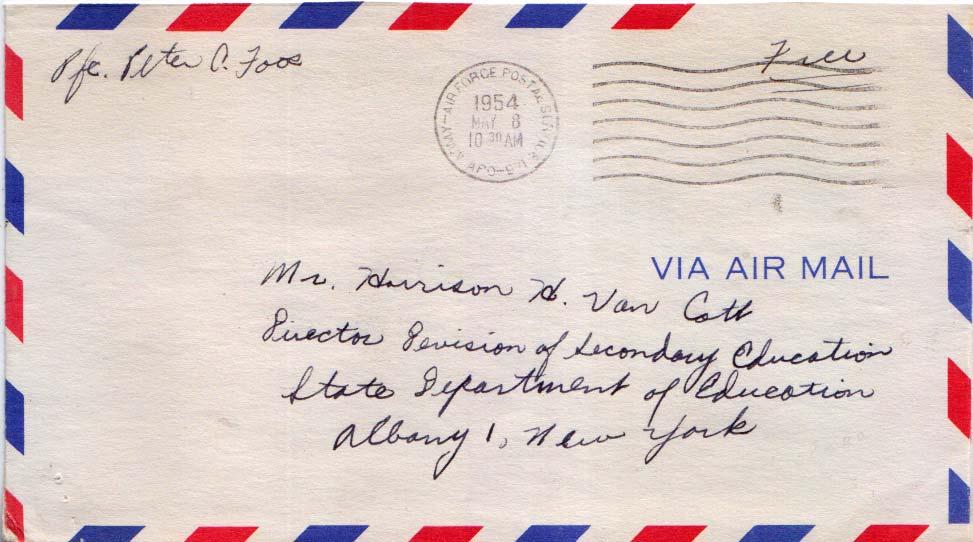 Pfc. Peter C. Foos
Free
ARMY-AIR FORCE POSTAL SERVICE
1954
MAY 8
10 30 AM
APO-971
VIA AIR MAIL
Mr. Harrison H. Van Cott
Director Devision of Secondary Education
State Department of Education
Albany 1, New York